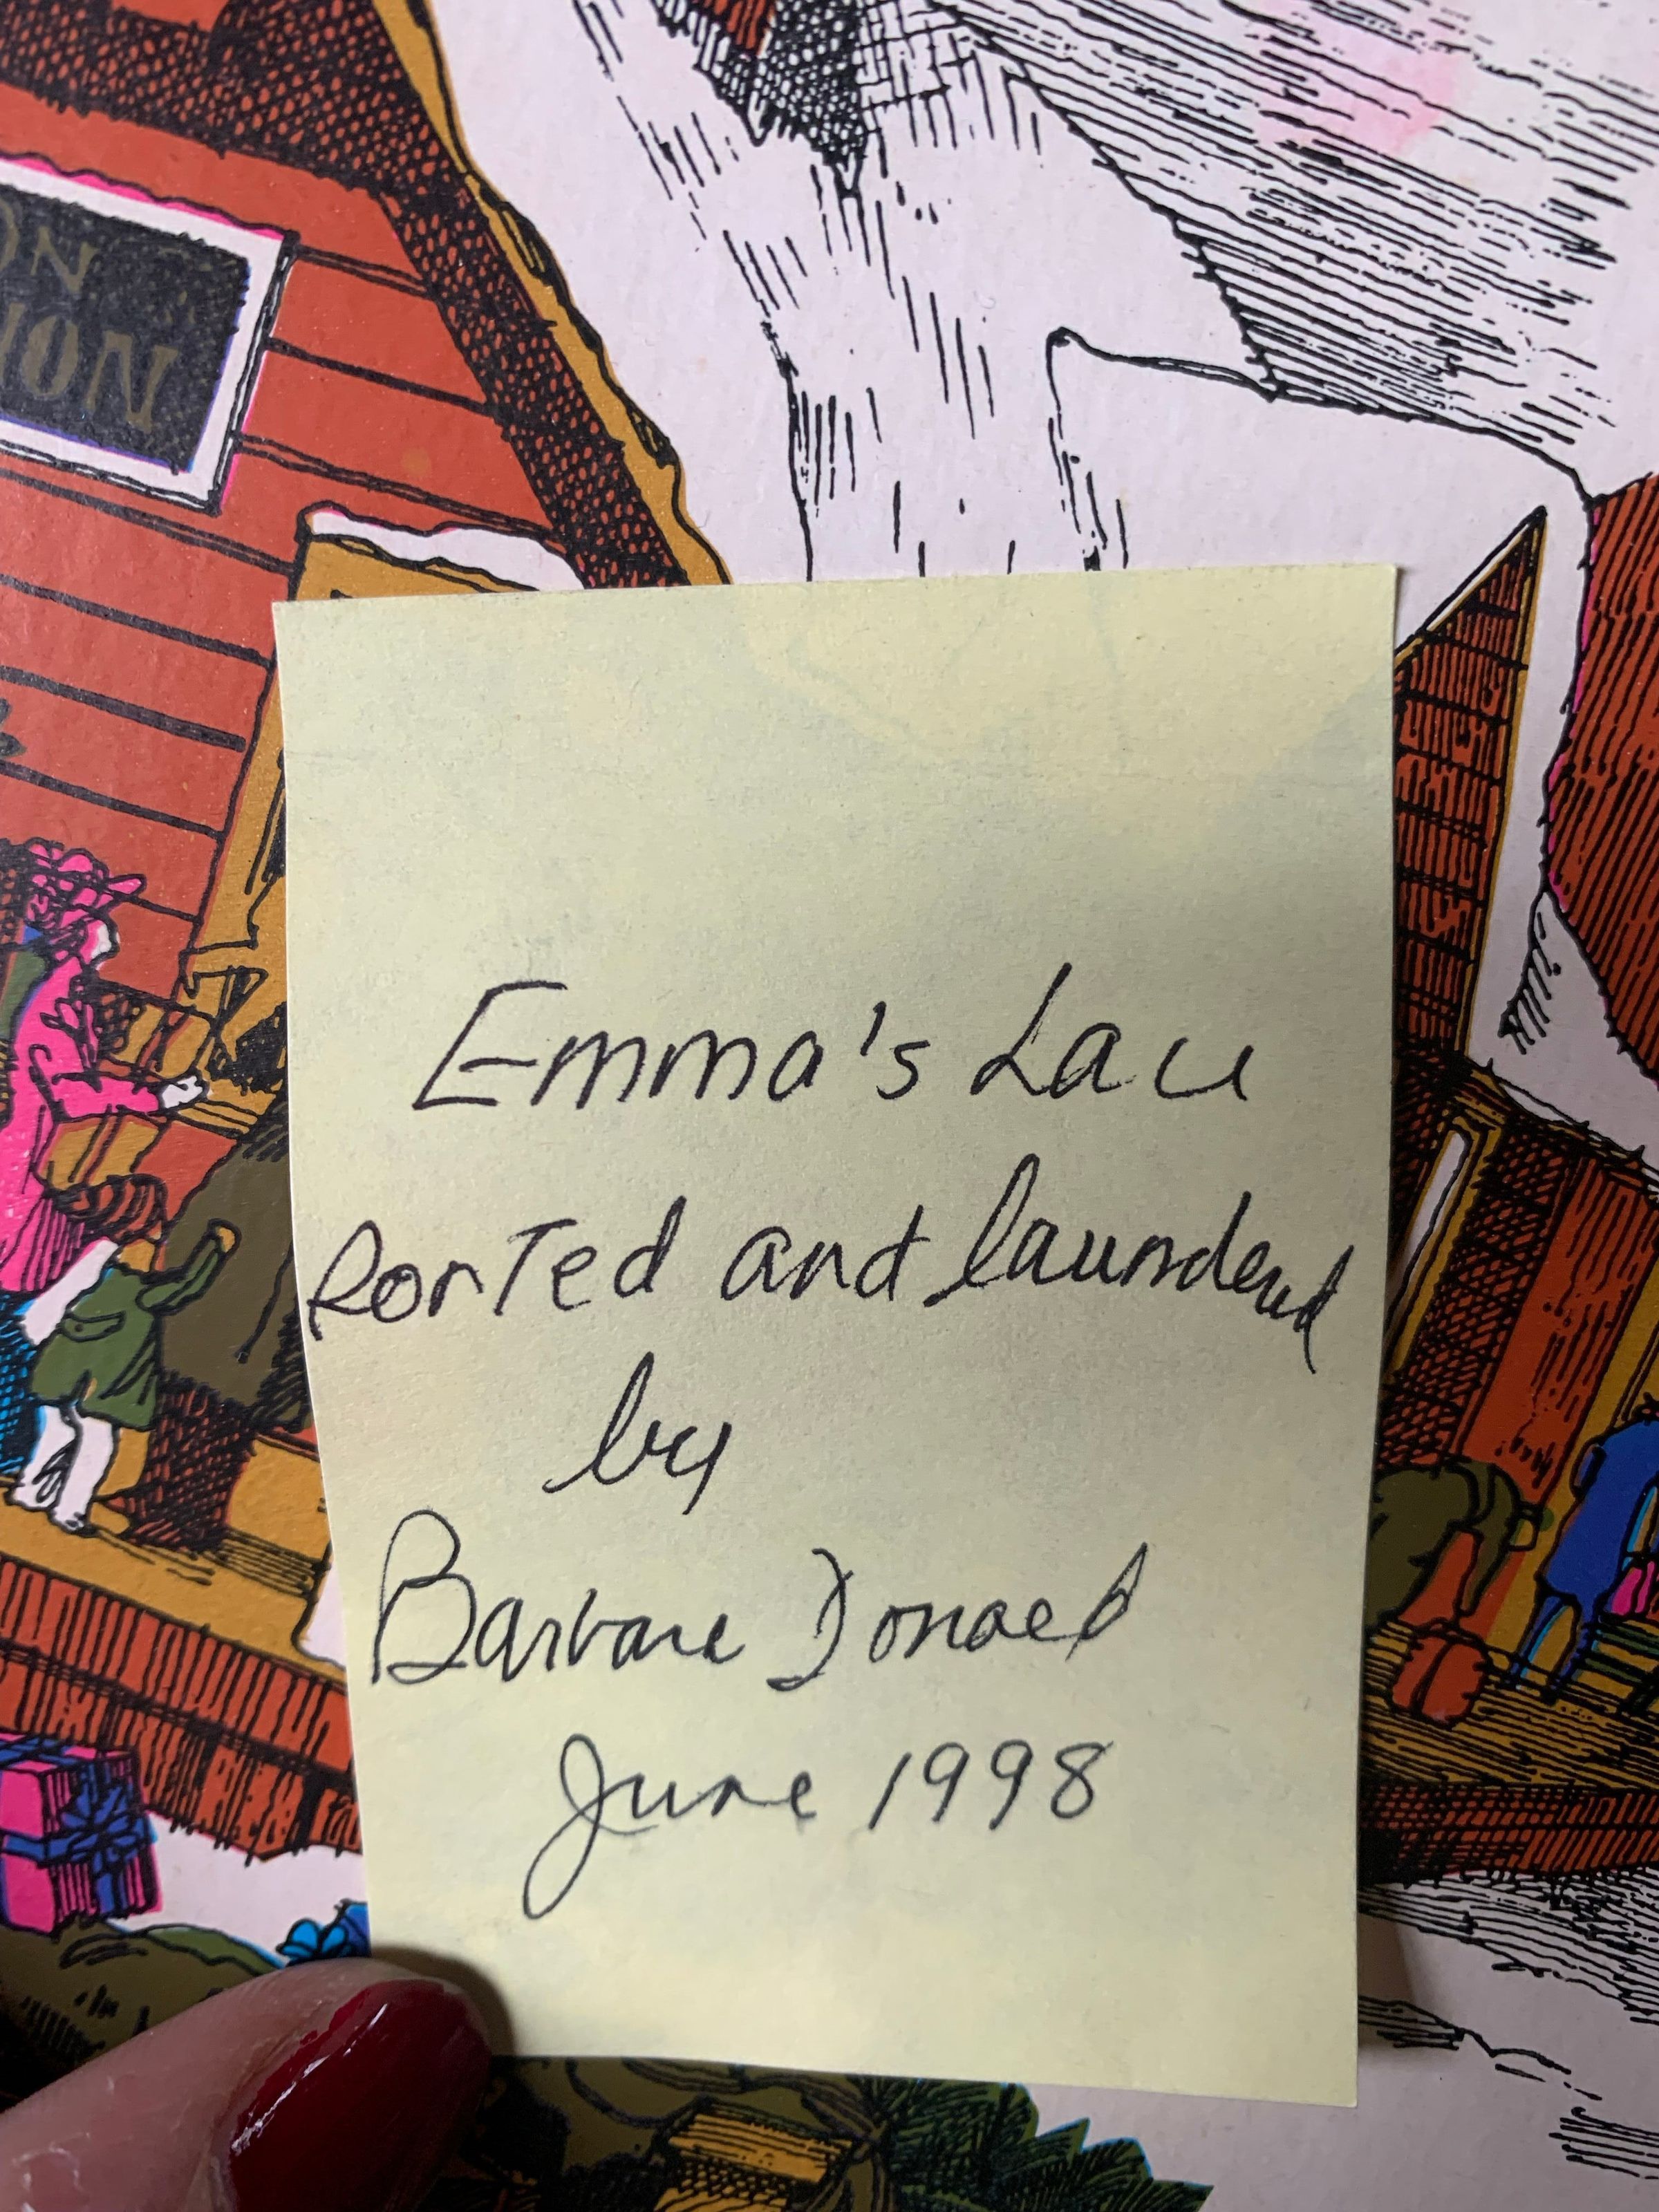 ON
ION
Emma's Lace
Sorted and laundered
by
Barbara Donald
June 1998